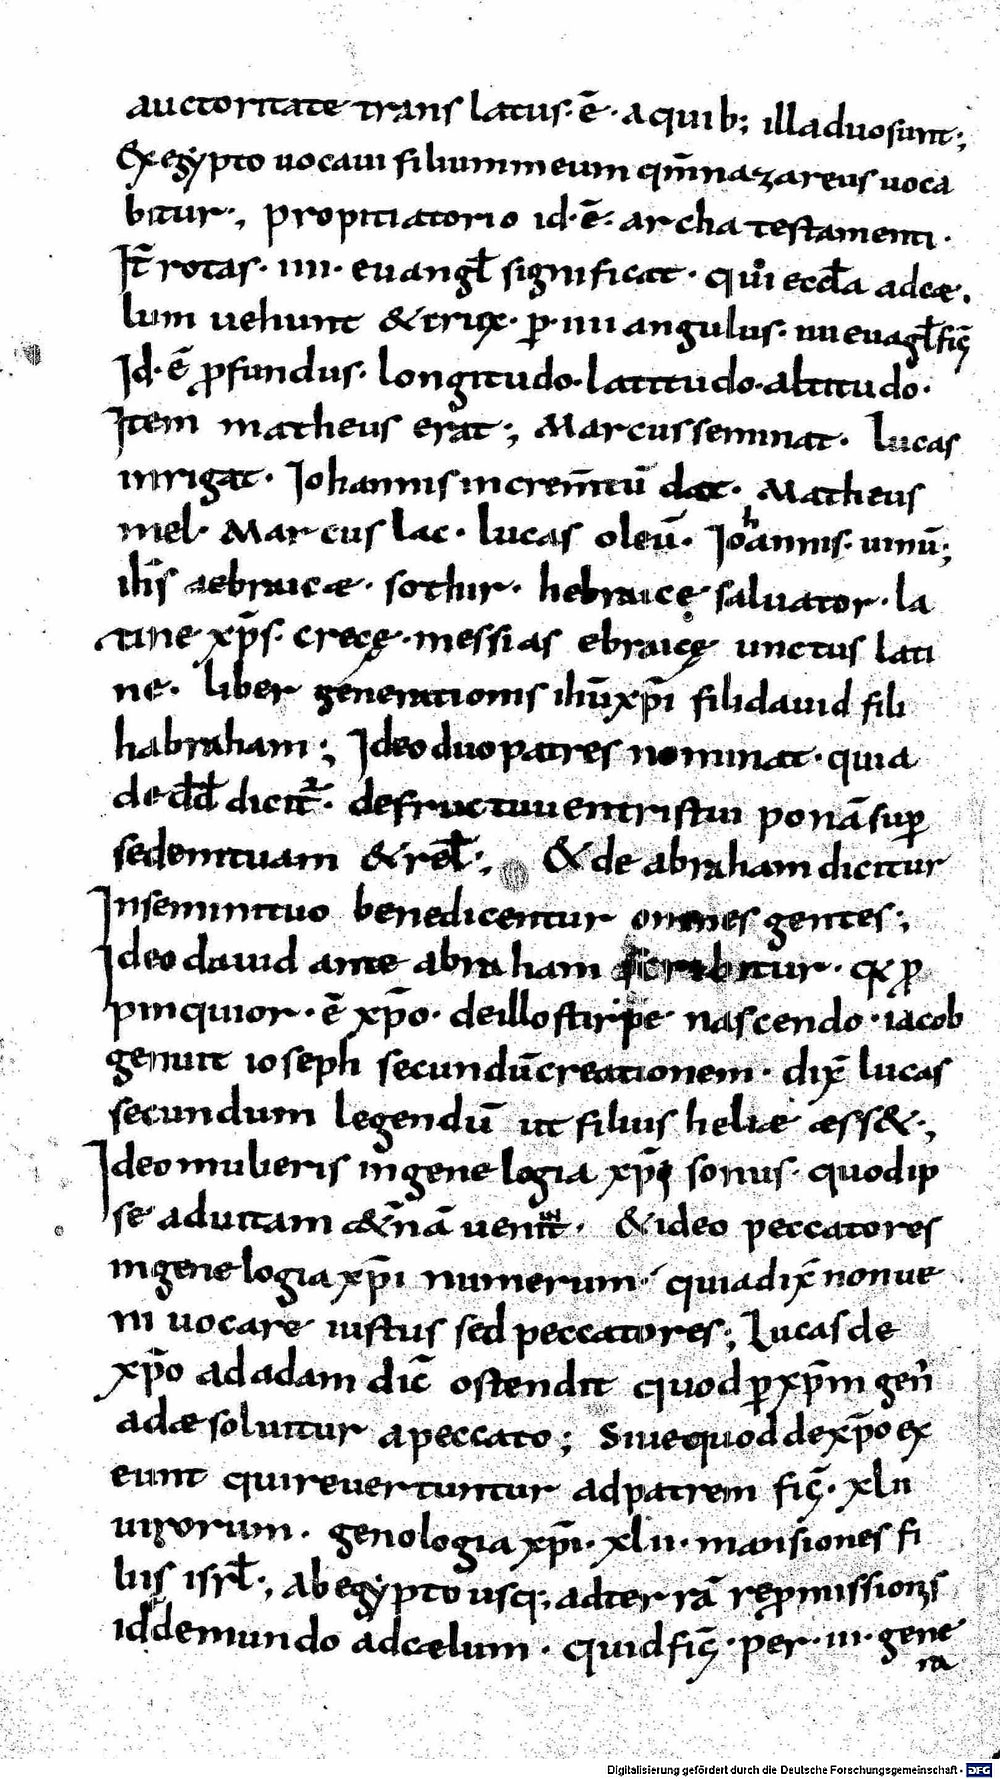 auctoritate trans latus· ē· a quib; illa duo sunt;
Ex egypto uocaui filium meum qm̄ nazareus uoca
bitur·, propitiatorio id· ē· archa testamenti·
It̄ rotas· iiii· euangł significat· qui eccła ad cæ.
lum uehunt & crux· p· iiii angulus· iiii euagł fiḡ
Id· ē pfundus· longitudo· latitudo· altitudo·
Item matheus erat; Marcus seminat· lucas
inrigat· Iohannis incrementū dat· Matheus
mel· Marcus lac· lucas oleū· Iohannis· uinū;
ih̄s aebraicæ· sothir· hebraicę saluator· la
tine xp̄s· crecę· messias ebraicę unctus lati
ne· liber generationis ihū xp̄i fili dauid fili
habraham; Ideo duo patres nominat· quia
de dd̄ dicit̄· de fructu uentris tui ponā sup
sedem tuam & rel·, & de abraham dicitur
In semini tuo benedicentur omnes gentes;
Ideo dauid ante abraham scrabitur· q p
pinquior· ē xp̄o· de illo stirpe nascendo· iacob
genuit ioseph secundū creationem· dix̄ lucas
secundum legendū ut filius heliæ æss&·,
Ideo mulieris in genelogia xp̄i sonus· quod ip
se ad uitam &̄nā uenit· & ideo peccatores
in genelogia xp̄i numerum· quia dix̄ non ue
ni uocare iustus sed peccatores; Lucas de
xp̄o ad adam dic̄ ostendit quod p xp̄m gen
adæ soluitur a peccato; Siue quod de xp̄o ex
eunt qui reuertuntur ad patrem fiḡ· xlii
uirorum· genologia xp̄i· xlii· mansiones fi
liis isrł·, Ab egypto usq; ad terrā repmissionis
id de mundo ad cælum· quid fiḡ· per· iii· gene
ra
Digitalisierung gefördert durch die Deutsche Forschungsgemeinschaft - DFG